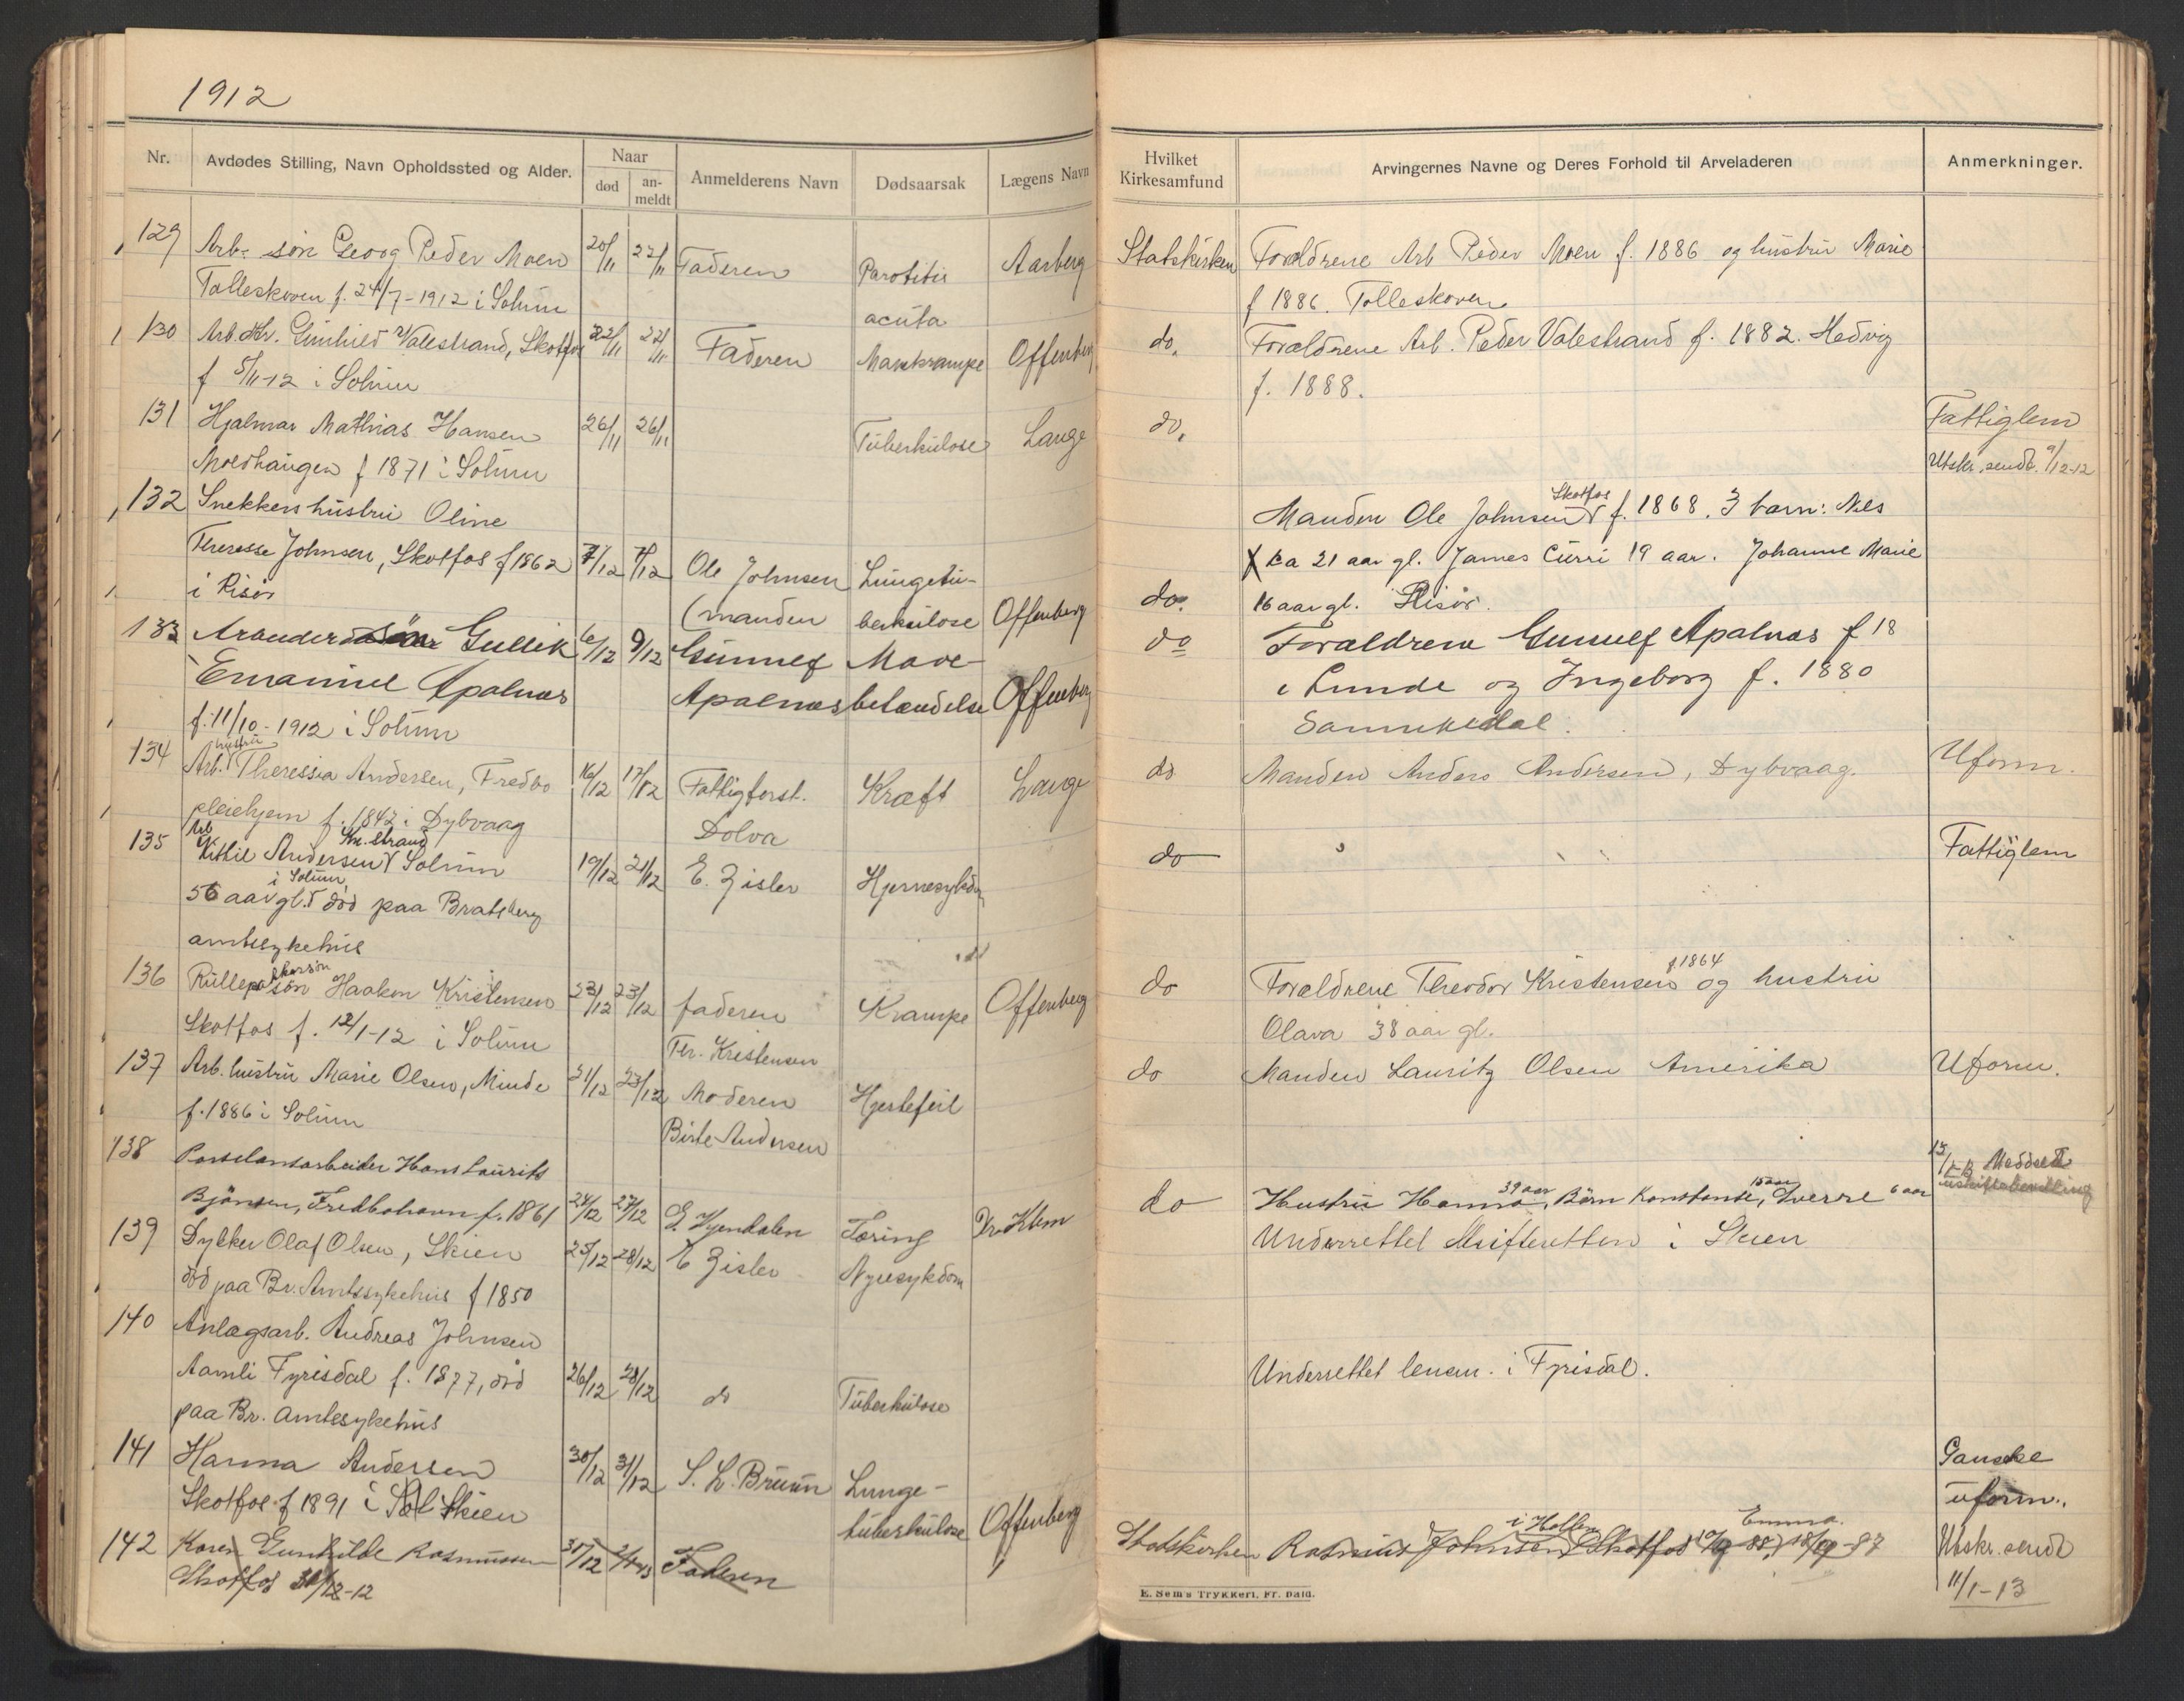 1912
Nr.
Avdødes Stilling, Navn Opholdssted og Alder.
Naar
død
an-
meldt
Anmelderens Navn
Dødsaarsak
Lægens Navn
129 Arb. søn Georg Peder Moen 20/11 22/11 Faderen Parotitis Aarberg
Tolleskoven f. 24/7-1912 i Solum acuta
130 Arb. dtr. Gunhild Valestrand, Skotfos 22/11 22/11 Faderen Mavekrampe Offenberg
f 5/11-12 i Solum
131 Hjalmar Mathias Hansen 26/11 26/11 Tuberkulose Lange
Moldhaugen f 1871 i Solum
132 Snekkers hustru Oline
Theresse Johnsen, Skotfos f 1862 7/12 7/12 Ole Johnsen Lungetu-
i Risør (manden berkulose Offenberg
133 Gullik 6/12 9/12 Gunnulf Mave-
Emanuel Apalnæs Apalnæs betændelse Offenberg
f. 11/10-1912 i Solum
134 Arb. hustru Theressia Andersen, Fredbo 16/12 17/12 Fattigforst. Kræft Lange
pleiehjem f. 1842 i Dybvaag Dolva
135 Arb Kittil Andersen Kr. Strand Solum 19/12 21/12 E. Zisler Hjernesykdom
56 aar gl. i Solum død paa Bratsberg
amtssykehus
136 Haakon Kristensen 23/12 23/12 faderen Krampe Offenberg
Skotfos f. 12/1-12 i Solum Th. Kristensen
137 Arb. hustru Marie Olsen, Minde 21/12 23/12 Moderen Hjertefeil
f. 1886 i Solum Birte Andersen
138 Porselansarbeider Hans Laurits
Bjønsen, Fredbohavn f. 1861 24/12 27/12 Tæring Dr. Klem
139 Dykker Olaf Olsen, Skien 25/12 28/12 E Zisler Nyresykdom
død paa Br. Amtssykehus f 1850
140 Anlægsarb. Andreas Johnsen
Aamli Fyrisdal f. 1877, død 26/12 28/12 do Tuberkulose
paa Br. amtssykehus
141 Hanna Andersen 30/12 31/12 S. L. Bruun Lunge-
Skotfos f 1891 i Skien tuberkulose Offenberg
142 Karen Gunhilde Rasmussen 31/12 Faderen
Skotfos 31/12-12
Hvilket
Kirkesamfund
Arvingernes Navne og Deres Forhold til Arveladeren
Anmerkninger.
Statskirken Forældrene Arb Peder Moen f. 1886 og hustru Marie
f 1886. Tolleskoven
do. Forældrene Arb. Peder Valestrand f. 1882. Hedvig
f. 1888.
do. Fattiglem
Utskr. sendt. 9/12-12
Manden Ole Johnsen Skotfos f. 1868. 3 barn: Nils
ca 21 aar gl. James Curri 19 aar. Johanne Marie
do. 16 aar gl. Risør.
do Forældrene Gunnulf Apalnæs f 18
i Lunde og Ingeborg f. 1880
Sannikedal.
do Manden Anders Andersen, Dybvaag. Uform.
do Fattiglem
do Forældrene Theodor Kristensen f 1864 og hustru
Olava 38 aar gl.
do Manden Lauritz Olsen Amerika Uform.
do Hustru Hanna 39 aar, Børn Konstanse 15 aar, Sverre 6 aar
Underrettet Skifteretten i Skien
Underrettet lensm. i Fyrisdal.
Ganske
uform.
Statskirken Rasmus Johnsen i Hollen Skotfos Emma Utskr. sendt
11/1-13
E. Sem's Trykkeri, Fr. Hald.